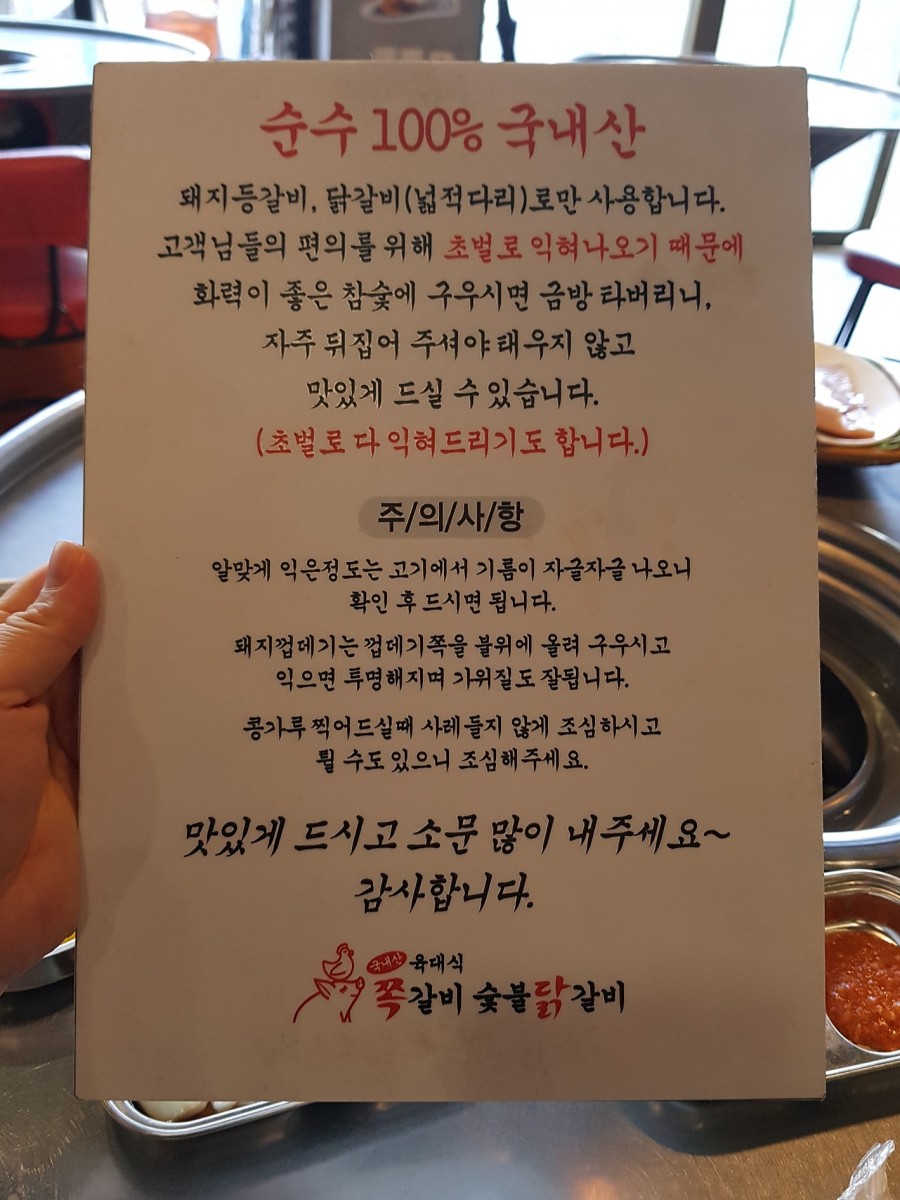 순수 100% 국내산
돼지등갈비, 닭갈비(넓적다리)로만 사용합니다.
고객님들의 편의를 위해 초벌로 익혀나오기 때문에
화력이 좋은 참숯에 구우시면 금방 타버리니,
자주 뒤집어 주셔야 태우지 않고
맛있게 드실 수 있습니다.
(초벌로 다 익혀드리기도 합니다.)
주/의/사/항
알맞게 익은정도는 고기에서 기름이 자글자글 나오니
확인 후 드시면 됩니다.
돼지껍데기는 껍데기쪽을 불위에 올려 구우시고
익으면 투명해지며 가위질도 잘됩니다.
콩가루 찍어드실때 사레들지 않게 조심하시고
튈 수도 있으니 조심해주세요.
맛있게 드시고 소문 많이 내주세요~
감사합니다.
국내산 육대식
쪽갈비 숯불닭갈비